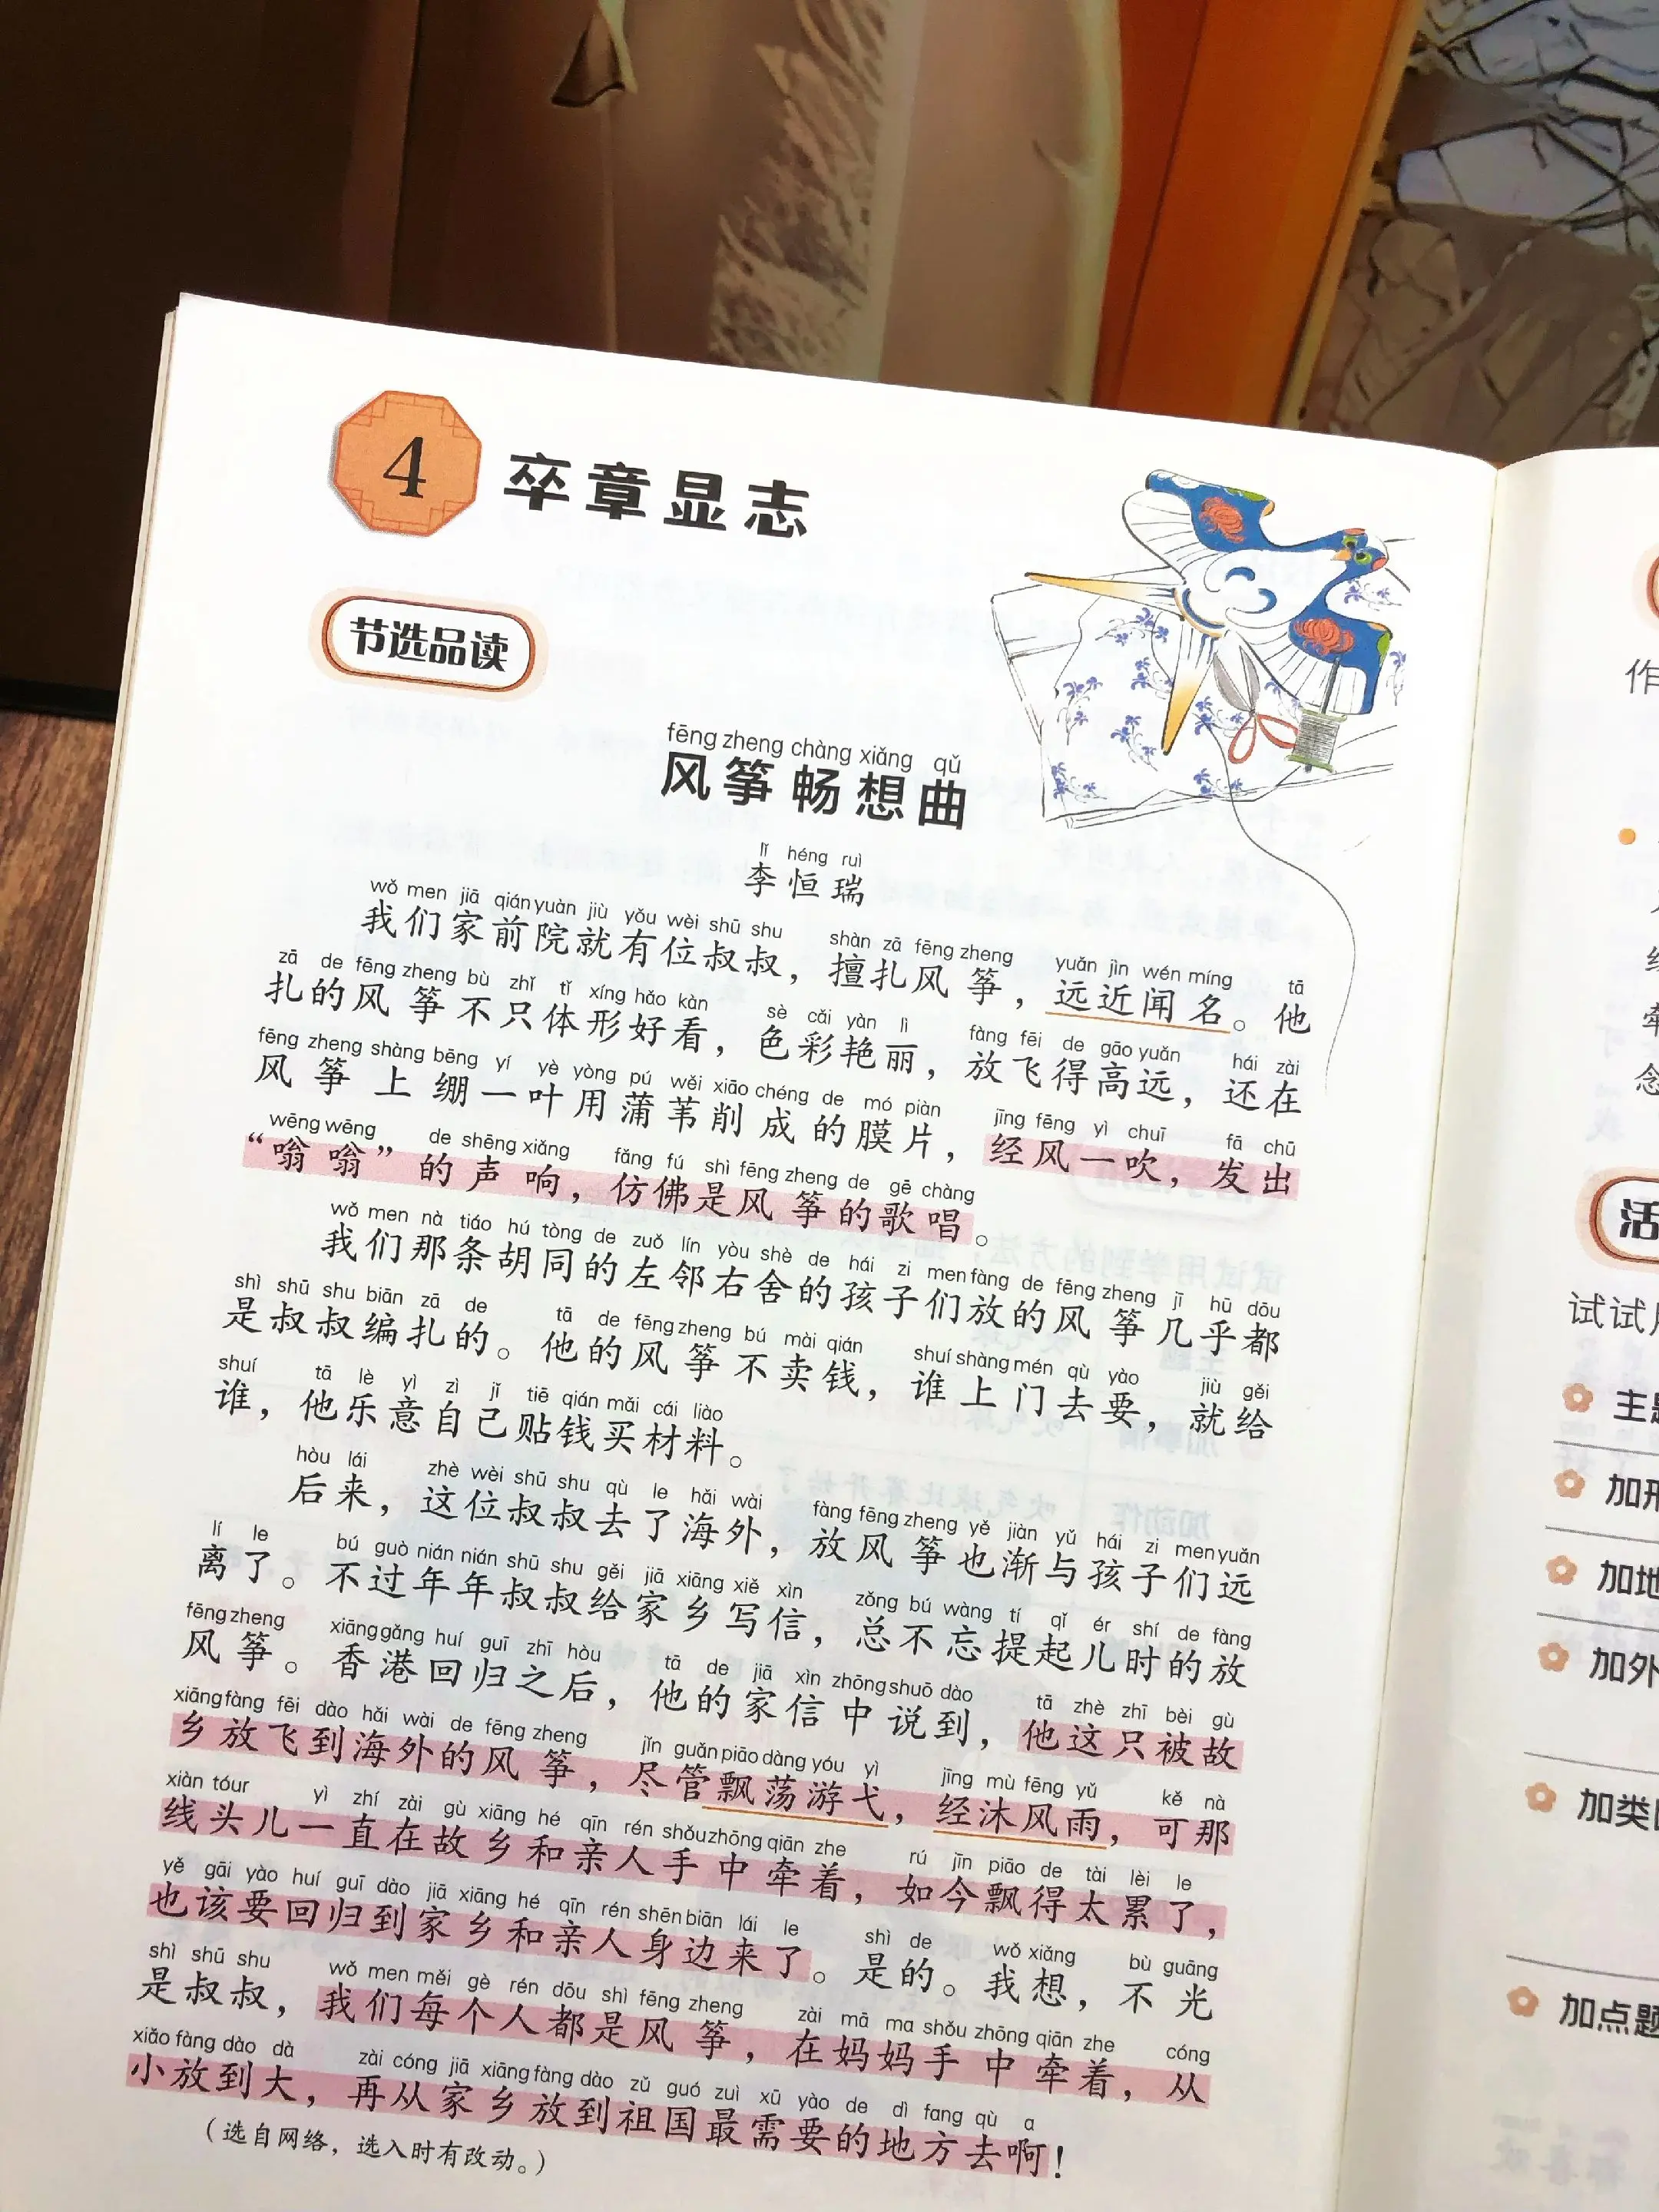 4
卒章显志
节选品读
fēng zheng chàng xiǎng qǔ
风筝畅想曲
lǐ héng ruì
李恒瑞
wǒ men jiā qián yuàn jiù yǒu wèi shū shu shàn zā fēng zheng yuǎn jìn wén míng tā
我们家前院就有位叔叔，擅扎风筝，远近闻名。他
zā de fēng zheng bù zhǐ tǐ xíng hǎo kàn sè cǎi yàn lì fàng fēi de gāo yuǎn hái zài
扎的风筝不只体形好看，色彩艳丽，放飞得高远，还在
fēng zheng shàng bēng yí yè yòng pú wěi xiāo chéng de mó piàn jīng fēng yì chuī fā chū
风筝上绷一叶用蒲苇削成的膜片，经风一吹，发出
wēng wēng de shēng xiǎng fǎng fú shì fēng zheng de gē chàng
“嗡嗡”的声响，仿佛是风筝的歌唱。
wǒ men nà tiáo hú tòng de zuǒ lín yòu shè de hái zi men fàng de fēng zheng jī hū dōu
我们那条胡同的左邻右舍的孩子们放的风筝几乎都
shì shū shu biān zā de tā de fēng zheng bú mài qián shuí shàng mén qù yào jiù gěi
是叔叔编扎的。他的风筝不卖钱，谁上门去要，就给
shuí tā lè yì zì jǐ tiē qián mǎi cái liào
谁，他乐意自己贴钱买材料。
hòu lái zhè wèi shū shu qù le hǎi wài fàng fēng zheng yě jiàn yǔ hái zi men yuǎn
后来，这位叔叔去了海外，放风筝也渐与孩子们远
lí le bú guò nián nián shū shu gěi jiā xiāng xiě xìn zǒng bú wàng tí qǐ ér shí de fàng
离了。不过年年叔叔给家乡写信，总不忘提起儿时的放
fēng zheng xiāng gǎng huí guī zhī hòu tā de jiā xìn zhōng shuō dào tā zhè zhī bèi gù
风筝。香港回归之后，他的家信中说到，他这只被故
xiāng fàng fēi dào hǎi wài de fēng zheng jǐn guǎn piāo dàng yóu yì jīng mù fēng yǔ kě nà
乡放飞到海外的风筝，尽管飘荡游弋，经沐风雨，可那
xiàn tóur yì zhí zài gù xiāng hé qīn rén shǒu zhōng qiān zhe rú jīn piāo de tài lèi le
线头儿一直在故乡和亲人手中牵着，如今飘得太累了，
yě gāi yào huí guī dào jiā xiāng hé qīn rén shēn biān lái le shì de wǒ xiǎng bù guāng
也该要回归到家乡和亲人身边来了。是的。我想，不光
shì shū shu wǒ men měi gè rén dōu shì fēng zheng zài mā ma shǒu zhōng qiān zhe cóng
是叔叔，我们每个人都是风筝，在妈妈手中牵着，从
xiǎo fàng dào dà zài cóng jiā xiāng fàng dào zǔ guó zuì xū yào de dì fang qù a
小放到大，再从家乡放到祖国最需要的地方去啊！
（选自网络，选入时有改动。）
作
念
活
试试
主
加形
加地
加外
加类
加点题